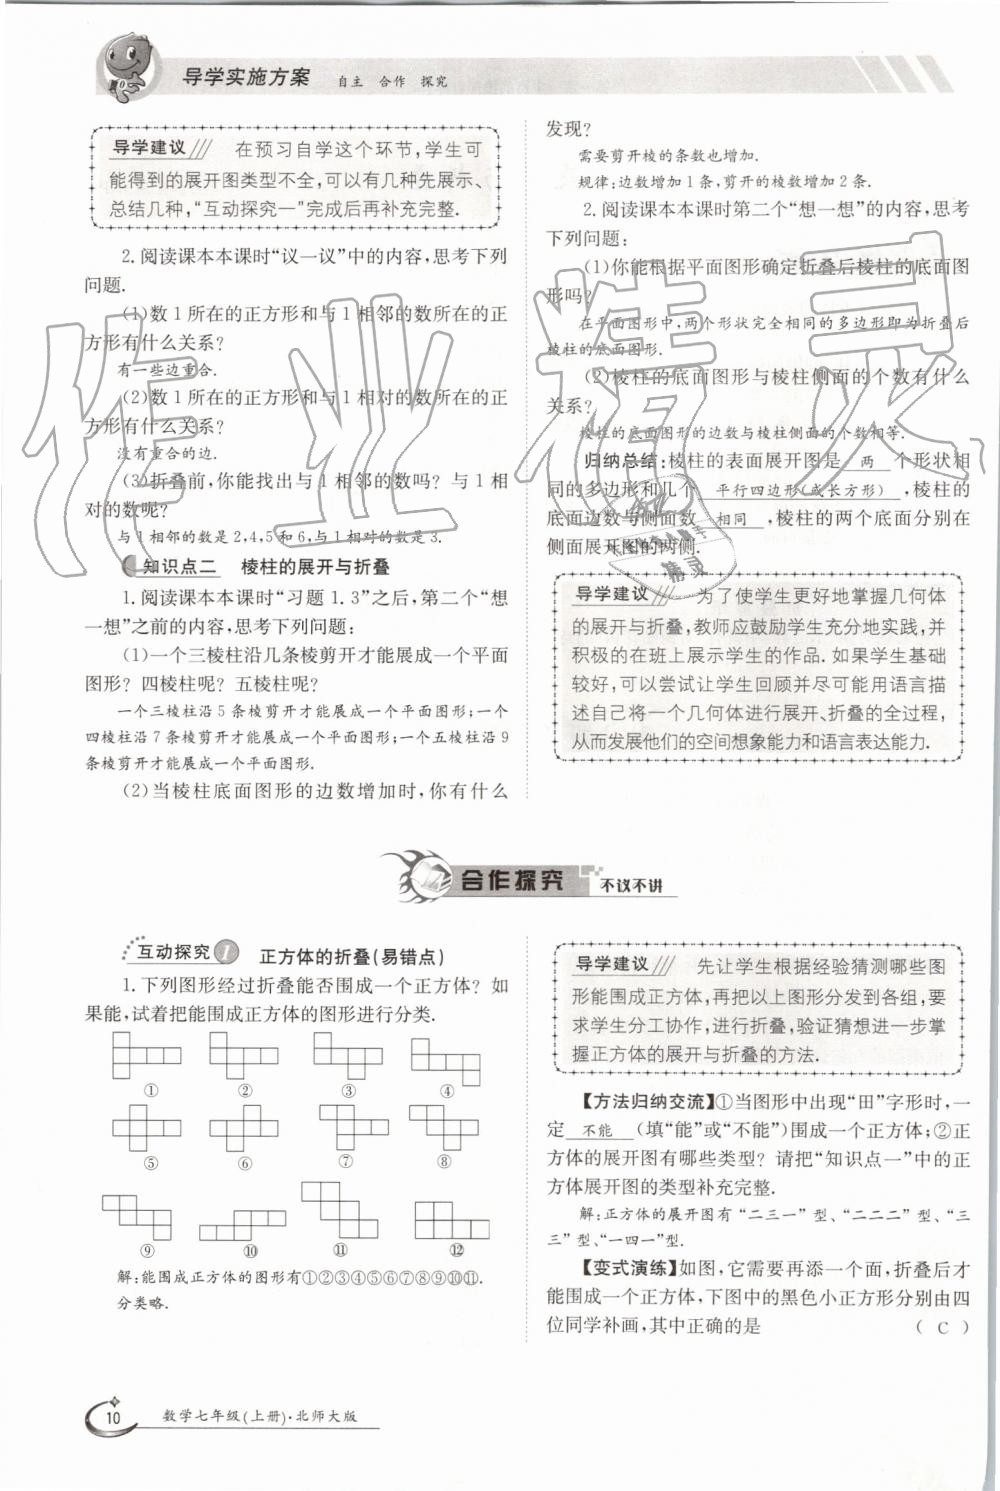 导学实施方案 自主 合作 探究
导学建议 在预习自学这个环节,学生可
能得到的展开图类型不全,可以有几种先展示、
总结几种,“互动探究一”完成后再补充完整.
2.阅读课本本课时“议一议”中的内容,思考下列
问题.
(1)数1所在的正方形和与1相邻的数所在的正
方形有什么关系?
有一些边重合.
(2)数1所在的正方形和与1相对的数所在的正
方形有什么关系?
没有重合的边.
(3)折叠前,你能找出与1相邻的数吗? 与1相
对的数呢?
与1相邻的数是2,4,5和6,与1相对的数是3.
知识点二 棱柱的展开与折叠
1.阅读课本本课时“习题1.3”之后,第二个“想
一想”之前的内容,思考下列问题:
(1)一个三棱柱沿几条棱剪开才能展成一个平面
图形? 四棱柱呢? 五棱柱呢?
一个三棱柱沿5条棱剪开才能展成一个平面图形;一个
四棱柱沿7条棱剪开才能展成一个平面图形;一个五棱柱沿9
条棱剪开才能展成一个平面图形.
(2)当棱柱底面图形的边数增加时,你有什么
发现?
需要剪开棱的条数也增加.
规律:边数增加1条,剪开的棱数增加2条.
2.阅读课本本课时第二个“想一想”的内容,思考
下列问题:
(1)你能根据平面图形确定折叠后棱柱的底面图
形吗?
在平面图形中,两个形状完全相同的多边形即为折叠后
棱柱的底面图形.
(2)棱柱的底面图形与棱柱侧面的个数有什么
关系?
棱柱的底面图形的边数与棱柱侧面的个数相等.
归纳总结:棱柱的表面展开图是 两 个形状相
同的多边形和几个 平行四边形(或长方形) ,棱柱的
底面边数与侧面数 相同 ,棱柱的两个底面分别在
侧面展开图的两侧.
导学建议 为了使学生更好地掌握几何体
的展开与折叠,教师应鼓励学生充分地实践,并
积极的在班上展示学生的作品.如果学生基础
较好,可以尝试让学生回顾并尽可能用语言描
述自己将一个几何体进行展开、折叠的全过程,
从而发展他们的空间想象能力和语言表达能力.
合作探究 不议不讲
互动探究1 正方体的折叠(易错点)
1.下列图形经过折叠能否围成一个正方体? 如
果能,试着把能围成正方体的图形进行分类.
① ② ③ ④
⑤ ⑥ ⑦ ⑧
⑨ ⑩ ⑪ ⑫
解:能围成正方体的图形有①②③④⑤⑥⑦⑧⑨⑩⑪.
分类略.
导学建议 先让学生根据经验猜测哪些图
形能围成正方体,再把以上图形分发到各组,要
求学生分工协作,进行折叠,验证猜想进一步掌
握正方体的展开与折叠的方法.
【方法归纳交流】①当图形中出现“田”字形时,一
定 不能 (填“能”或“不能”)围成一个正方体;②正
方体的展开图有哪些类型? 请把“知识点一”中的正
方体展开图的类型补充完整.
解:正方体的展开图有“二三一”型、“二二二”型、“三
三”型、“一四一”型.
【变式演练】如图,它需要再添一个面,折叠后才
能围成一个正方体,下图中的黑色小正方形分别由四
位同学补画,其中正确的是 ( C )
10 数学七年级(上册)·北师大版
作业精灵